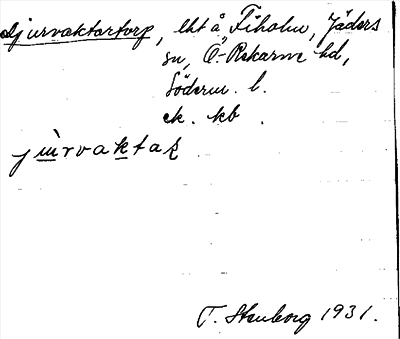 Djurvaktartorp, lht å Fiholm, Jäders
sn, Ö-Rekarne hd,
Söderm. l.
ek. kb.
jùrvaktaʀ
T. Stenborg 1931.